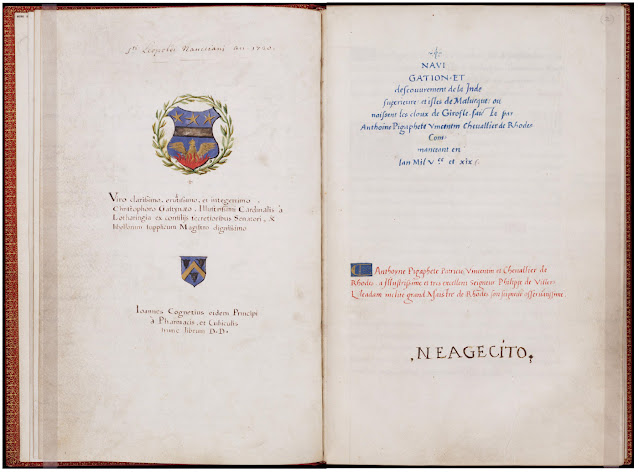 Sti Leopoldi Nanceiani An. 1720.
Viro clarissimo, eruditissimo, et integerrimo
Christophoro Gastynato, Illustrissimi Cardinalis à
Lotharingia ex consilijs secretioribus Senatori, &
libellorum supplicum Magistro dignissimo
Ioannes Cognetius eidem Principi
à Pharmacis, et Cubiculis
hunc librum D.D.
NAVI
GATION·ET
descouvrement de la Inde
superieure et isles de Malueque ou
naissent les cloux de Girofle. faicte par
Anthoine Pigaphete Vincentin Chevallier de Rhodes
Com
mancant en
Lan Mil Vcc et xix
Anthoyne Pigaphete Patricie Vincentin et Chevallier de
Rhodes a Illustrissime et tres excellent Seigneur Philippe de Villers
Lisleadam inclite grand Maistre de Rhodes son seigneur osservantissime.
.NEAGECITO.